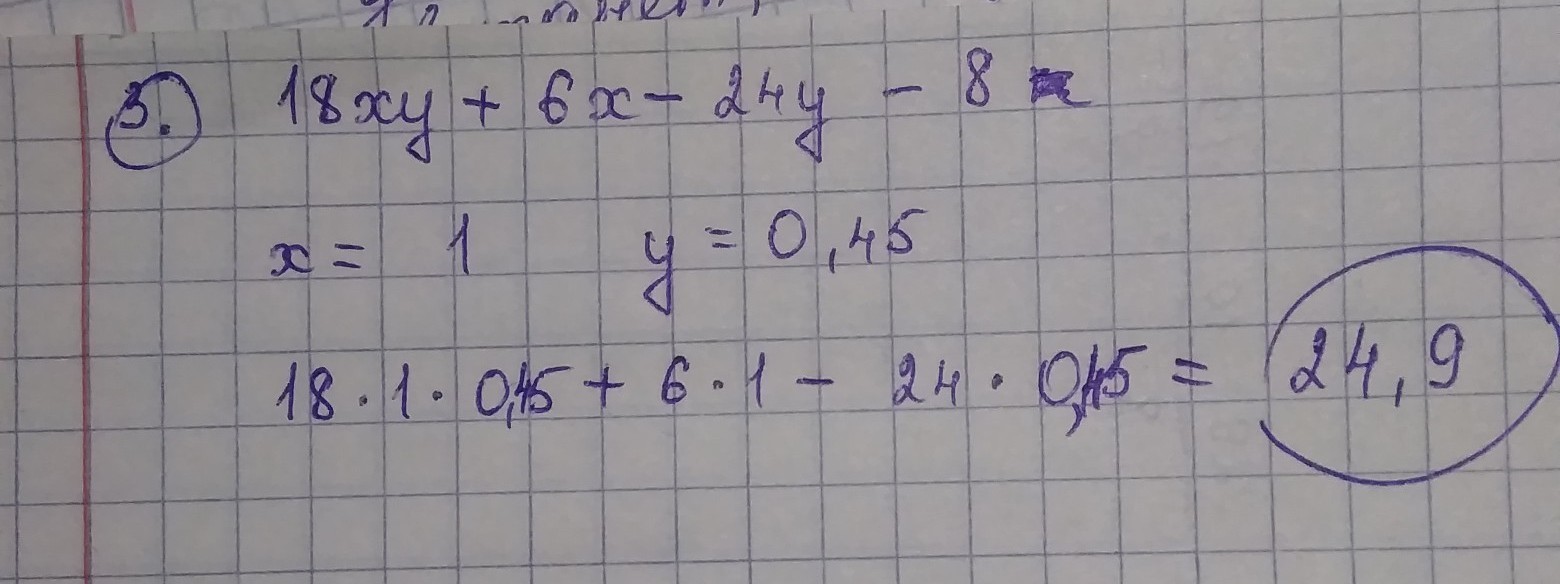 3. 18xy + 6x - 24y - 8
x = 1 y = 0,45
18 · 1 · 0,45 + 6 · 1 - 24 · 0,45 = 24,9